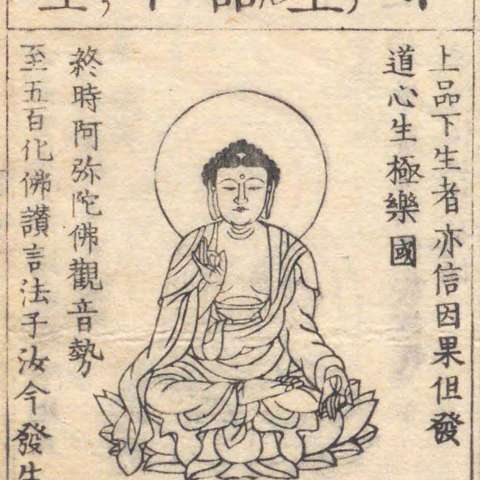 上品下生者亦信因果但發
道心生極樂國
終時阿弥陀佛觀音勢
至五百化佛讃言法子汝今發